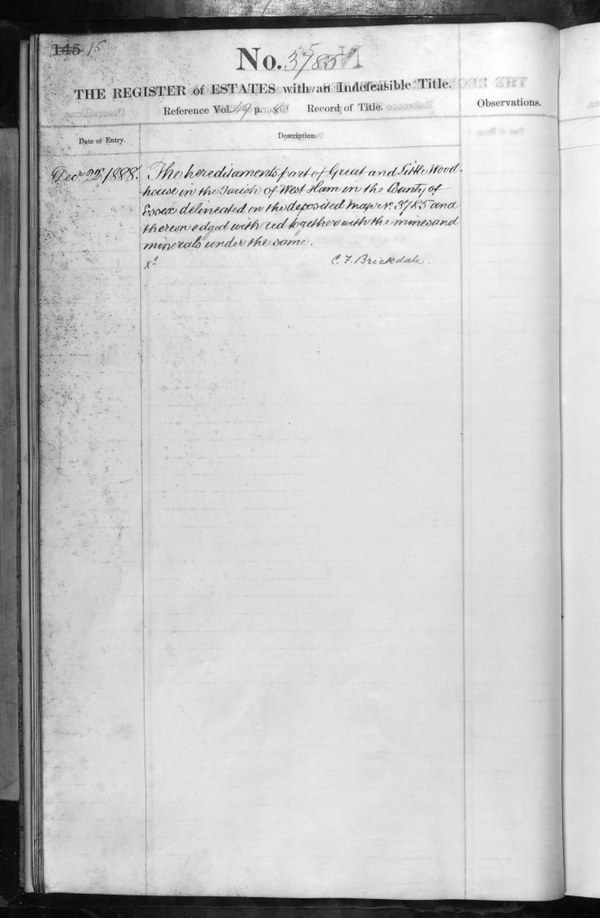 145 15
No. 3785
THE REGISTER of ESTATES with an Indefeasible Title.
Reference Vol. 49 p. Record of Title.
Observations.
Date of Entry.
Description.
Decr. 22d 1888.
The hereditaments part of Great and Little Wood-
house in the Parish of West Ham in the County of
Essex delineated on the deposited map No. 3785 and
thereon edged with red together with the mines and
minerals under the same.
C. F. Brickdale.